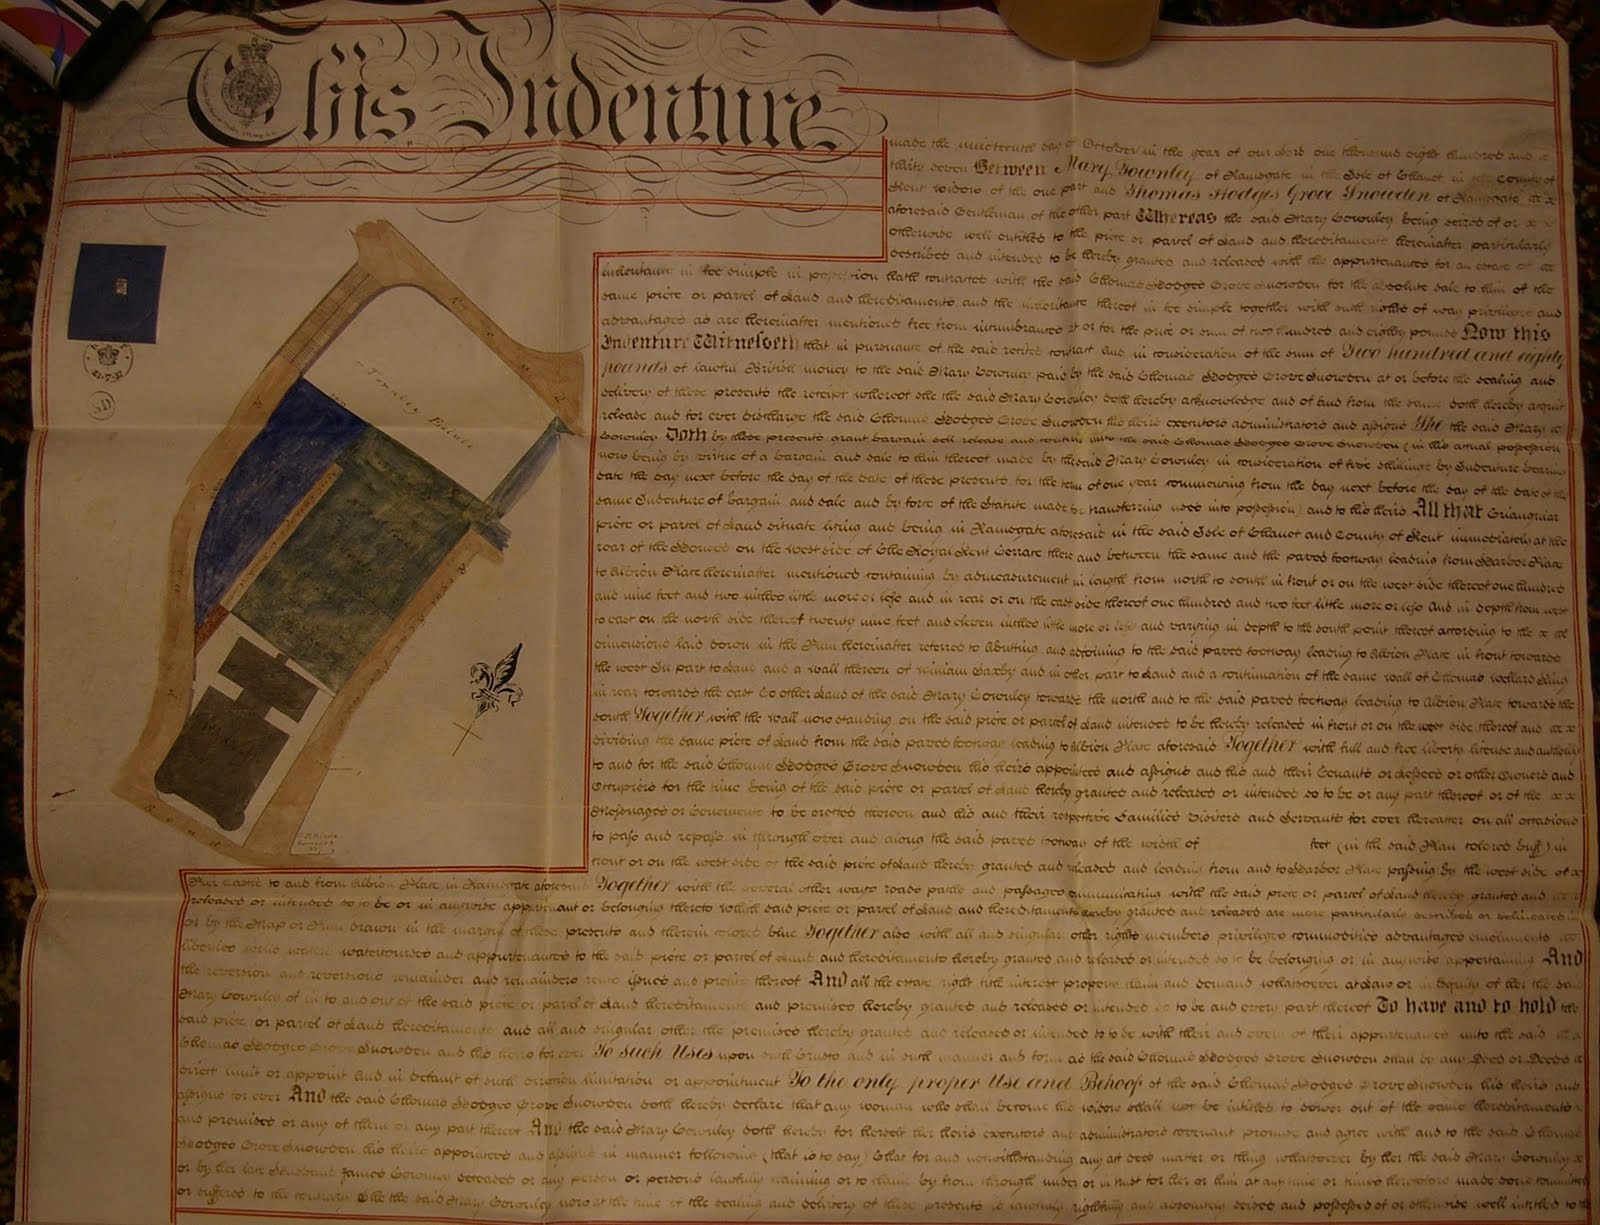 This Indenture
made the nineteenth day of October in the year of our Lord one thousand eight hundred and
thirty seven Between Mary Townley of Ramsgate in the Isle of Thanet in the County of
Kent widow of the one part and Thomas Hodges Grove Snowden of Ramsgate
aforesaid Gentleman of the other part Whereas the said Mary Townley being seized of or
otherwise well entitled to the piece or parcel of Land and hereditaments hereinafter particularly
described and intended to be hereby granted and released with the appurtenances for an estate of
inheritance in fee simple in possession hath contracted with the said Thomas Hodges Grove Snowden for the absolute sale to him of the
same piece or parcel of Land and hereditaments and the inheritance thereof in fee simple together with such rights of way privileges and
advantages as are hereinafter mentioned free from incumbrances at or for the price or sum of two hundred and eighty pounds Now this
Indenture Witnesseth that in pursuance of the said recited contract and in consideration of the sum of Two hundred and eighty
pounds of lawful British money to the said Mary Townley paid by the said Thomas Hodges Grove Snowden at or before the sealing and
delivery of these presents the receipt whereof she the said Mary Townley doth hereby acknowledge and of and from the same doth hereby acquit
release and for ever discharge the said Thomas Hodges Grove Snowden his heirs executors administrators and assigns She the said Mary
Townley Doth by these presents grant bargain sell release and confirm unto the said Thomas Hodges Grove Snowden (in his actual possession
now being by virtue of a bargain and sale to him thereof made by the said Mary Townley in consideration of five shillings by Indenture bearing
date the day next before the day of the date of these presents for the term of one year commencing from the day next before the day of the date of the
same Indenture of bargain and sale and by force of the Statute made for transferring uses into possession) and to his heirs All that triangular
piece or parcel of Land situate lying and being in Ramsgate aforesaid in the said Isle of Thanet and County of Kent immediately at the
rear of the Houses on the west side of The Royal Kent Terrace there and between the same and the paved footway leading from Harbor Place
to Albion Place hereinafter mentioned containing by admeasurement in length from north to south in front or on the west side thereof one hundred
and nine feet and two inches little more or less and in rear or on the east side thereof one hundred and two feet little more or less And in depth from west
to east on the north side thereof twenty nine feet and eleven inches little more or less and varying in depth to the south point thereof according to the
dimensions laid down in the Plan hereinafter referred to Abutting and adjoining to the said paved footway leading to Albion Place in front towards
the west In part to Land and a wall thereon of William Saxby and in other part to Land and a continuation of the same wall of Thomas Wollard King
in rear towards the east To other Land of the said Mary Townley towards the north and to the said paved footway leading to Albion Place towards the
south Together with the wall now standing on the said piece or parcel of Land intended to be hereby released in front or on the west side thereof and
dividing the same piece of Land from the said paved footway leading to Albion Place aforesaid Together with full and free liberty license and authority
to and for the said Thomas Hodges Grove Snowden his heirs appointees and assigns and his and their Tenants or Lessees or other Owners and
Occupiers for the time being of the said piece or parcel of Land hereby granted and released or intended so to be or any part thereof or of the
Messuages or Tenements to be erected thereon and his and their respective Families Visitors and Servants for ever hereafter on all occasions
to pass and repass in through over and along the said paved footway of the width of feet (in the said Plan colored buff) in
front or on the west side of the said piece of Land hereby granted and released and leading from and to Harbor Place passing by the west side of
Castle to and from Albion Place in Ramsgate aforesaid Together with the several other ways roads paths and passages communicating with the said piece or parcel of Land hereby granted and
released or intended so to be or in anywise appurtenant or belonging thereto Which said piece or parcel of Land and hereditaments hereby granted and released are more particularly described or delineated in
or by the Map or Plan drawn in the margin of these presents and therein colored blue Together also with all and singular other rights members privileges commodities advantages emoluments
liberties watercourses and appurtenances to the said piece or parcel of Land and hereditaments hereby granted and released or intended so to be belonging or in anywise appertaining And
the reversion and reversions remainder and remainders rents issues and profits thereof And all the estate right title interest property claim and demand whatsoever at Law or in Equity of her the said
Mary Townley of in to and out of the said piece or parcel of Land hereditaments and premises hereby granted and released or intended so to be and every part thereof To have and to hold the
said piece or parcel of Land hereditaments and all and singular other the premises hereby granted and released or intended so to be with their and every of their appurtenances unto the said
Thomas Hodges Grove Snowden and his heirs for ever To such Uses upon such Trusts and in such manner and form as the said Thomas Hodges Grove Snowden shall by any Deed or Deeds
direct limit or appoint And in default of such direction limitation or appointment To the only proper Use and Behoof of the said Thomas Hodges Grove Snowden his heirs and
assigns for ever And the said Thomas Hodges Grove Snowden doth hereby declare that any woman who shall become his widow shall not be intitled to dower out of the same hereditaments
and premises or any of them or any part thereof And the said Mary Townley doth hereby for herself her heirs executors and administrators covenant promise and agree with and to the said Thomas
Hodges Grove Snowden his heirs appointees and assigns in manner following (that is to say) that for and notwithstanding any act deed matter or thing whatsoever by her the said Mary Townley
or by her late Husband James Townley deceased or any person or persons lawfully claiming or to claim by from through under or in trust for her or him at any time or times heretofore made done committed
or suffered to the contrary She the said Mary Townley now at the time of the sealing and delivery of these presents is lawfully rightfully and absolutely seized and possessed of or otherwise well intitled to the
Townley Palace